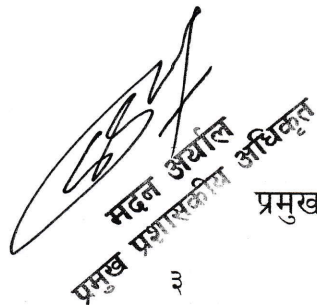 मदन अर्याल
प्रमुख प्रशासकीय अधिकृत
प्रमुख
३